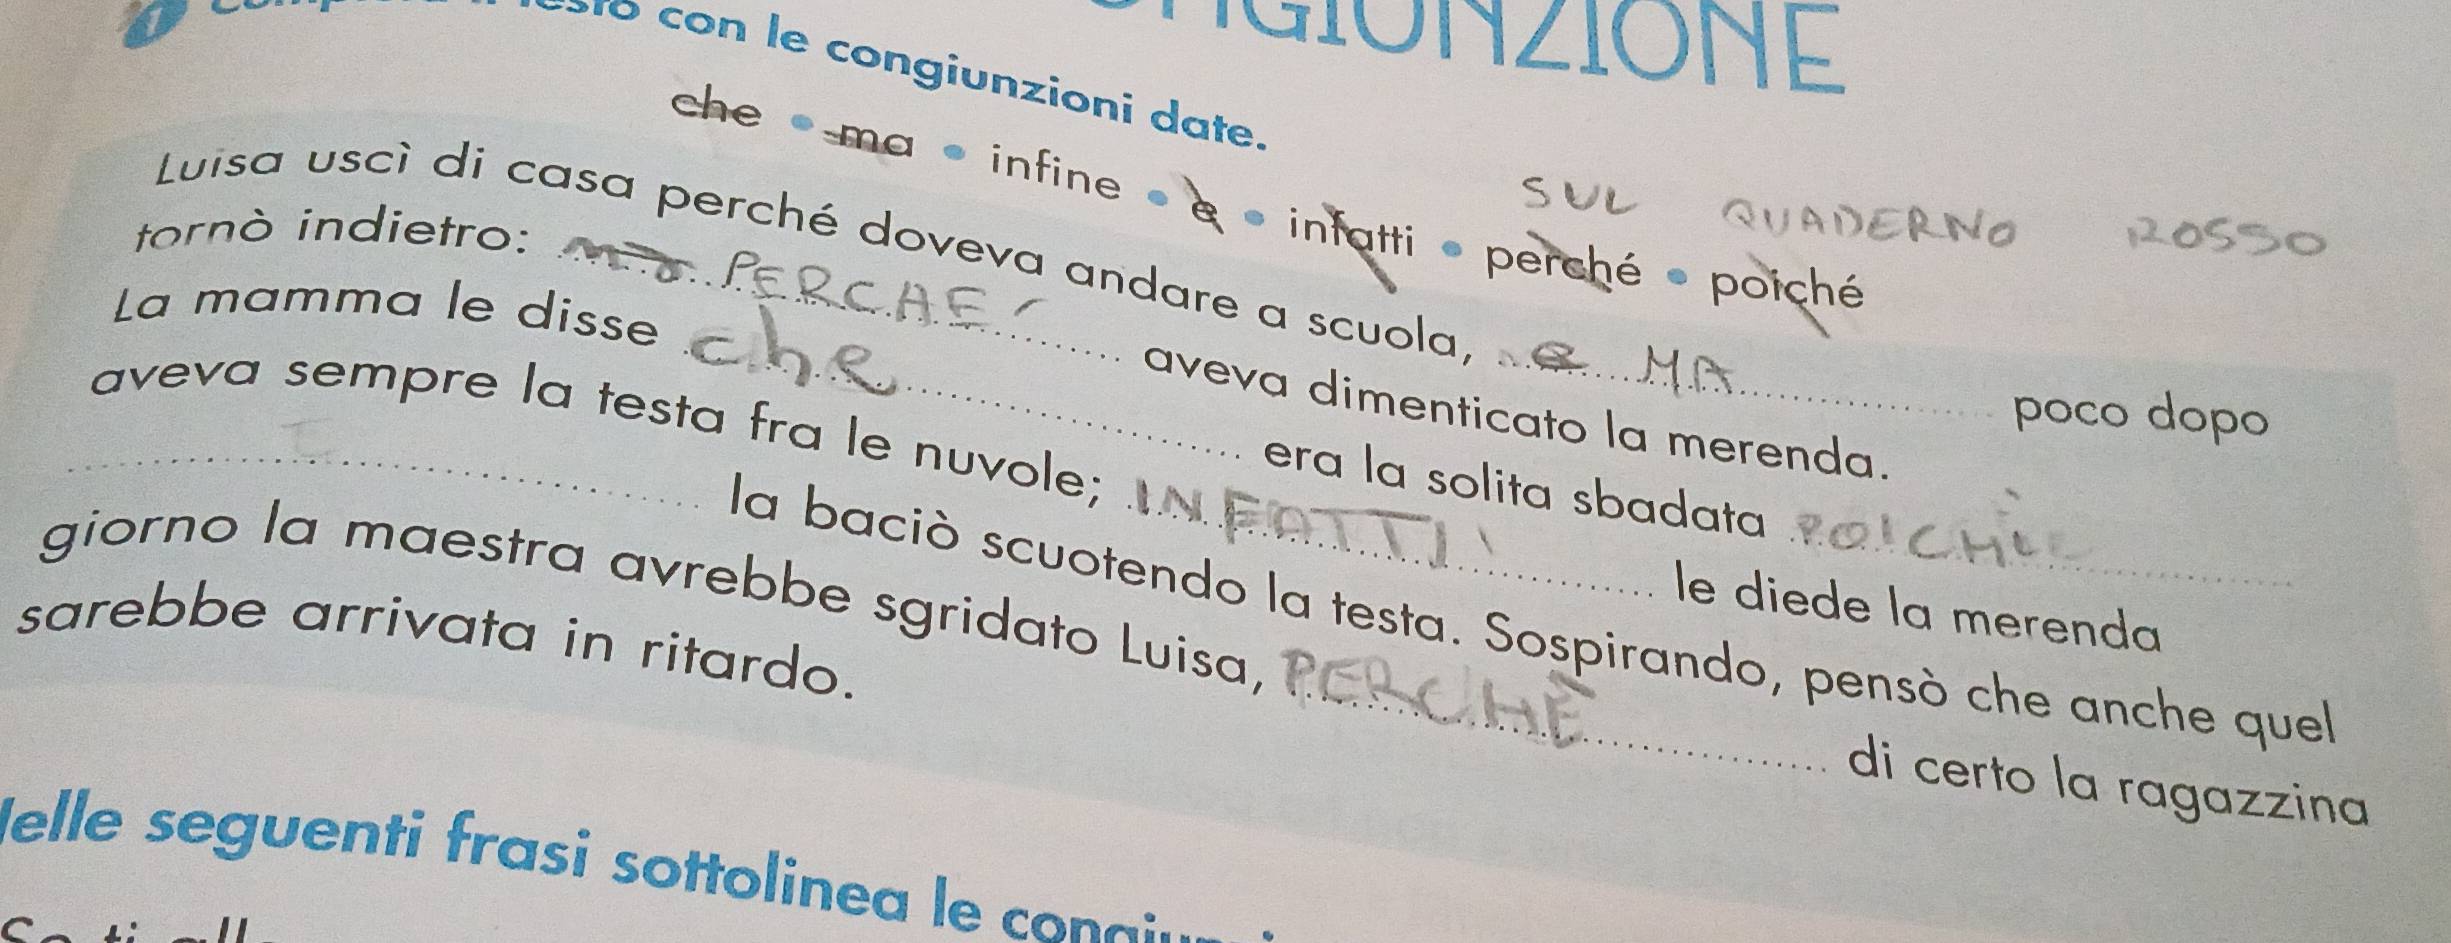 NGIUNZIONE
con le congiunzioni date.
che • ma • infine • e • infatti • perché • poiché
SUL QUADERNO ROSSO
Luisa uscì di casa perché doveva andare a scuola, e MA poco dopo
tornò indietro: ma PERCHÉ aveva dimenticato la merenda.
La mamma le disse che era la solita sbadata POICHÉ
aveva sempre la testa fra le nuvole; INFATTI le diede la merenda
la baciò scuotendo la testa. Sospirando, pensò che anche quel
giorno la maestra avrebbe sgridato Luisa, PERCHÈ di certo la ragazzina
sarebbe arrivata in ritardo.
elle seguenti frasi sottolinea le